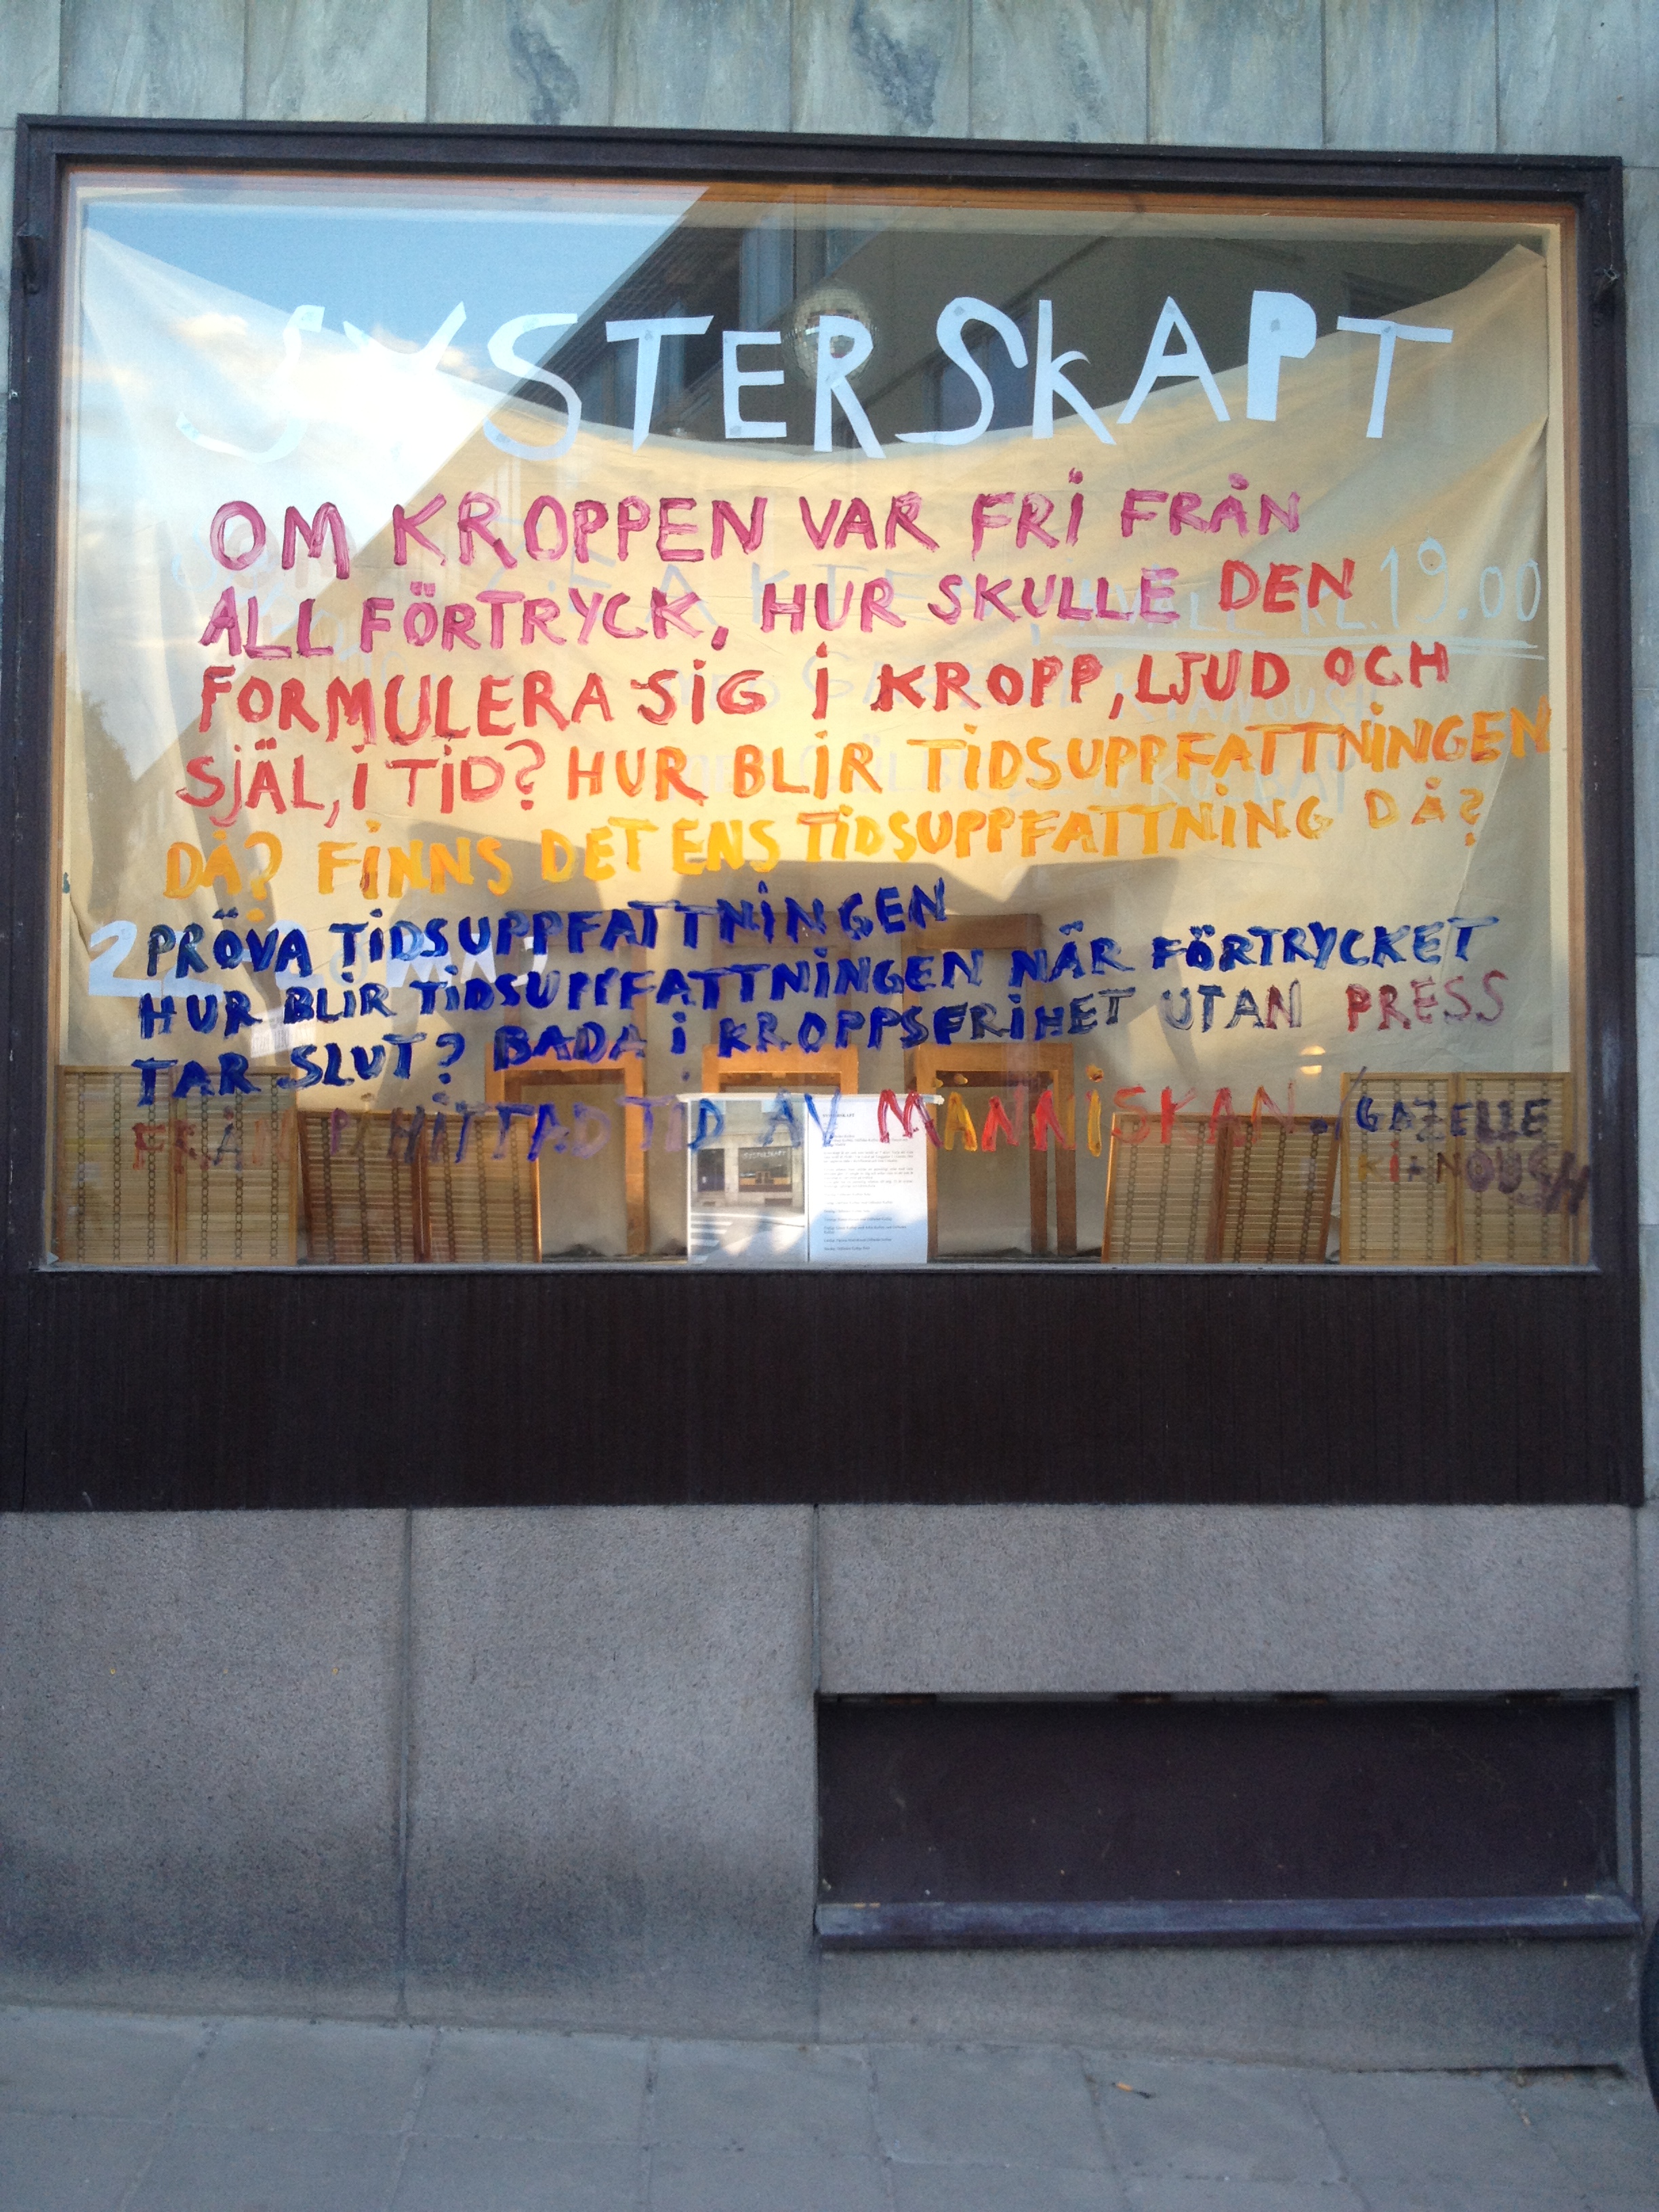 SYSTERSKAPT
OM KROPPEN VAR FRI FRÅN
ALL FÖRTRYCK, HUR SKULLE DEN
19.00
FORMULERA SIG I KROPP, LJUD OCH
SJÄL, I TID? HUR BLIR TIDSUPPFATTNINGEN
DÅ? FINNS DET ENS TIDSUPPFATTNING DÅ?
PRÖVA TIDSUPPFATTNINGEN
HUR BLIR TIDSUPPFATTNINGEN NÄR FÖRTRYCKET
TAR SLUT? BADA I KROPPSFRIHET UTAN PRESS
FRÅN PÅHITTAD TID AV MÄNNISKAN. /GAZELLE
KIANOUSH